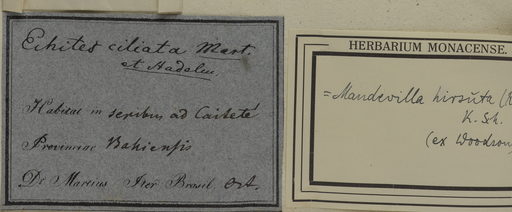 Echites ciliata Mart.
et Stadelm.
Habitat in sepibus ad Caiteté
Provinciae Bahiensis
Dr. Martius Iter Brasil. Oct.
HERBARIUM MONACENSE.
= Mandevilla hirsuta (R
K. Sch.
(ex Woodson